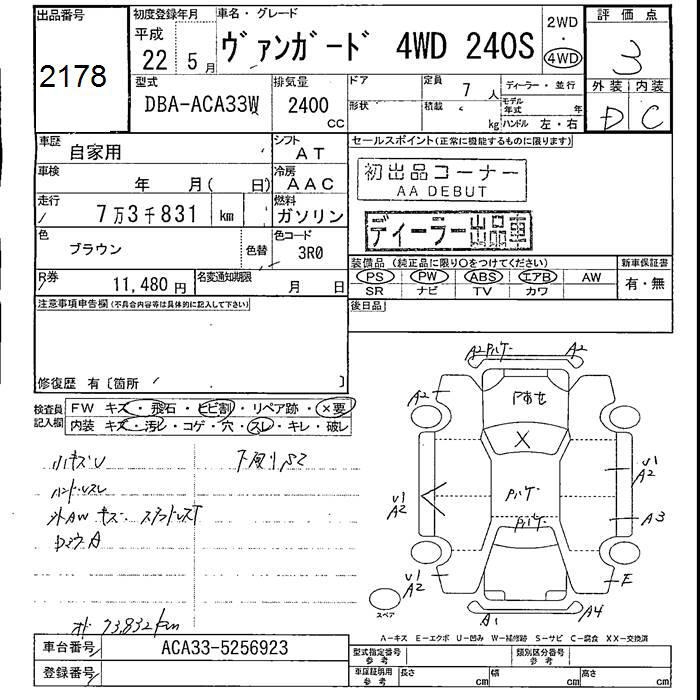 出品番号
2178
初度登録年月
平成
22 5月
車名・グレード
ヴァンガード 4WD 240S
2WD
・
4WD
評価点
3
外装 内装
D C
型式
DBA-ACA33W
排気量
2400
CC
ドア
形状
定員
7 人
積載
kg
ディーラー・並行
モデル年式 年
ハンドル 左・右
車歴
自家用
シフト
AT
車検
年 月( 日)
冷房
AAC
走行
7万3千831 km
燃料
ガソリン
色
ブラウン
色替
色コード
3R0
R券
11,480円
名変通知期限
月 日
セールスポイント(正常に機能するものに限ります)
初出品コーナー
AA DEBUT
ディーラー出品車
装備品 (純正品に限り○をつけてください)
PS PW ABS エアB AW
SR ナビ TV カワ
新車保証書
有・無
注意事項申告欄(不具合内容等は具体的に記入して下さい)
後日品
修復歴 有〔箇所 〕
検査員記入欄
FW キズ・飛石・ヒビ割・リペア跡・×要
内装 キズ・汚レ・コゲ・穴・スレ・キレ・破レ
小キズU
ハンドルスレ
外AWキズ
73,832km
A2 A2
A2
X
U1
A2
U1
A2
A3
U1
A2
E
A1 A4
スペア
A−キズ E−エクボ U−凹み W−補修跡 S−サビ C−腐食 XX−交換済
車台番号
ACA33-5256923
登録番号
型式指定番号
参考
類別区分番号
参考
車庫証明用
参考
長さ cm 幅 cm 高さ cm